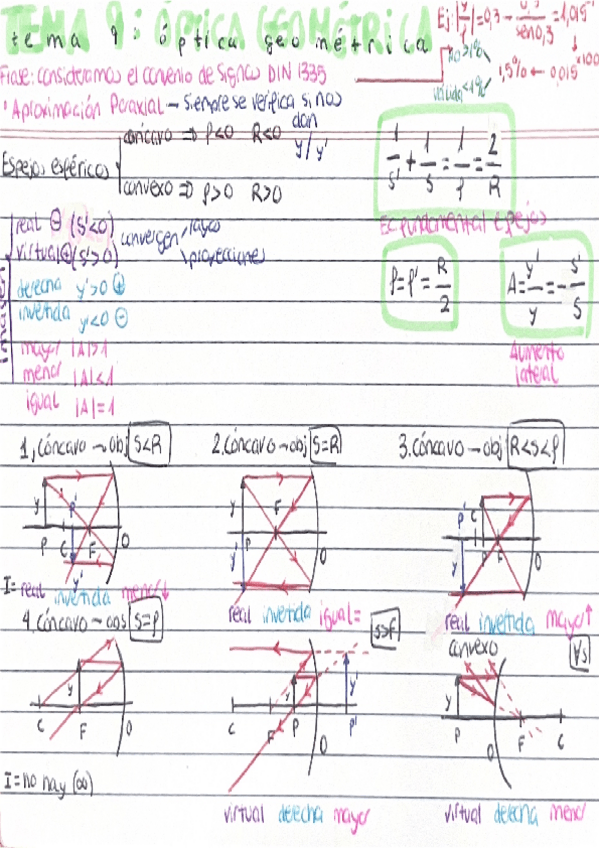 TEMA 9: ÓPTICA GEOMÉTRICA
tema 9: óptica geométrica
Ej: |y/y'| = 0,3 → 0,3/sen0,3 = 1,015
no >1%
válida <1%
1,5% ← 0,015 x100
Frase: consideramos el convenio de signos DIN 1335
· Aproximación Paraxial → siempre se verifica si nos dan y/y'
Espejos esféricos
cóncavo ⇒ f<0 R<0
convexo ⇒ f>0 R>0
1/s' + 1/s = 1/f = 2/R
Ec fundamental espejos
Imagen
real ⊖ (s'<0)
virtual ⊕ (s'>0)
convergen
rayos
proyecciones
derecha y'>0 ⊕
invertida y'<0 ⊖
mayor |A|>1
menor |A|<1
igual |A|=1
f=f'=R/2
A=y'/y=-s'/s
Aumento lateral
1, cóncavo → obj S<R
2. cóncavo → obj S=R
3. cóncavo → obj R<s<f
y P C P' F O y'
y P F O y'
P' C y P F O y'
I= real invertida menor↓
real invertida igual=
real invertida mayor↑
4. cóncavo → obj S=f
s>f
convexo ∀s
y C F O
C F P y O y' P'
y P O F C
I= no hay (∞)
virtual derecha mayor
virtual derecha menor